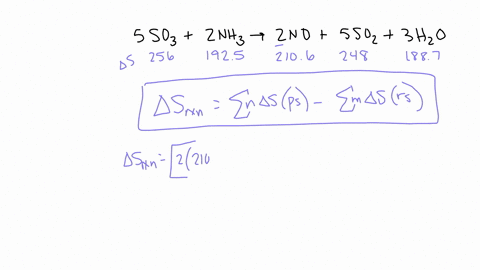 5SO₃ + 2NH₃ → 2NO + 5SO₂ + 3H₂O
ΔS 256 192.5 210.6 248 188.7
ΔSrxn = ∑nΔS(ps) − ∑mΔS(rs)
ΔSrxn = [2(210